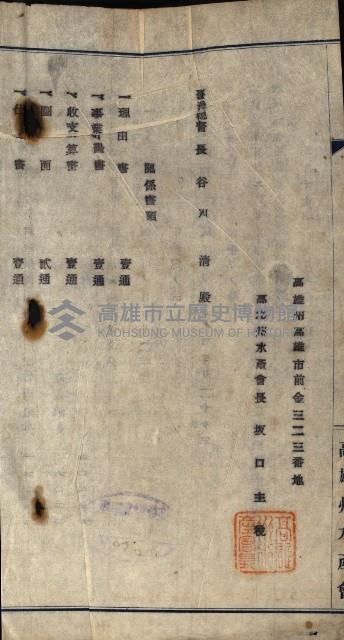 高雄州高雄市前金三二三番地
高雄州水產會長 坂口主稅
臺灣總督長谷川清殿
關係書類
一、理由書 壹通
一、事業計畫書 壹通
一、收支豫算書 壹通
一、圖面 貳通
書 壹通
高雄州水產會
高雄市立歷史博物館
KAOHSIUNG MUSEUM OF HISTORY